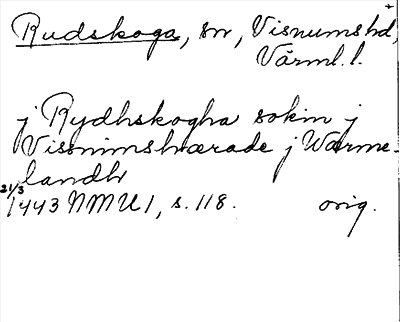 Rudskoga, sn, Visnums hd,
Värml. l.
j Rydhskogha sokin j
Vissnimshærade j Wærme-
landh
21/3
1443 NMU 1, s. 118. orig.